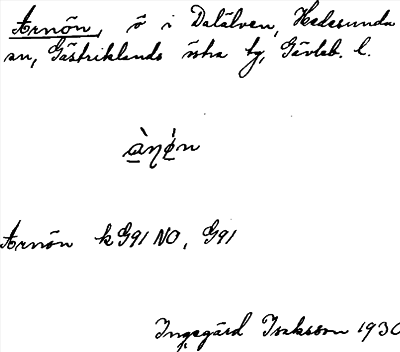 Arnön, ö i Dalälven, Hedesunda
sn, Gästriklands östra tg, Gävleb. l.
Arnön k G91 NO, G91
Ingegärd Isaksson 1930